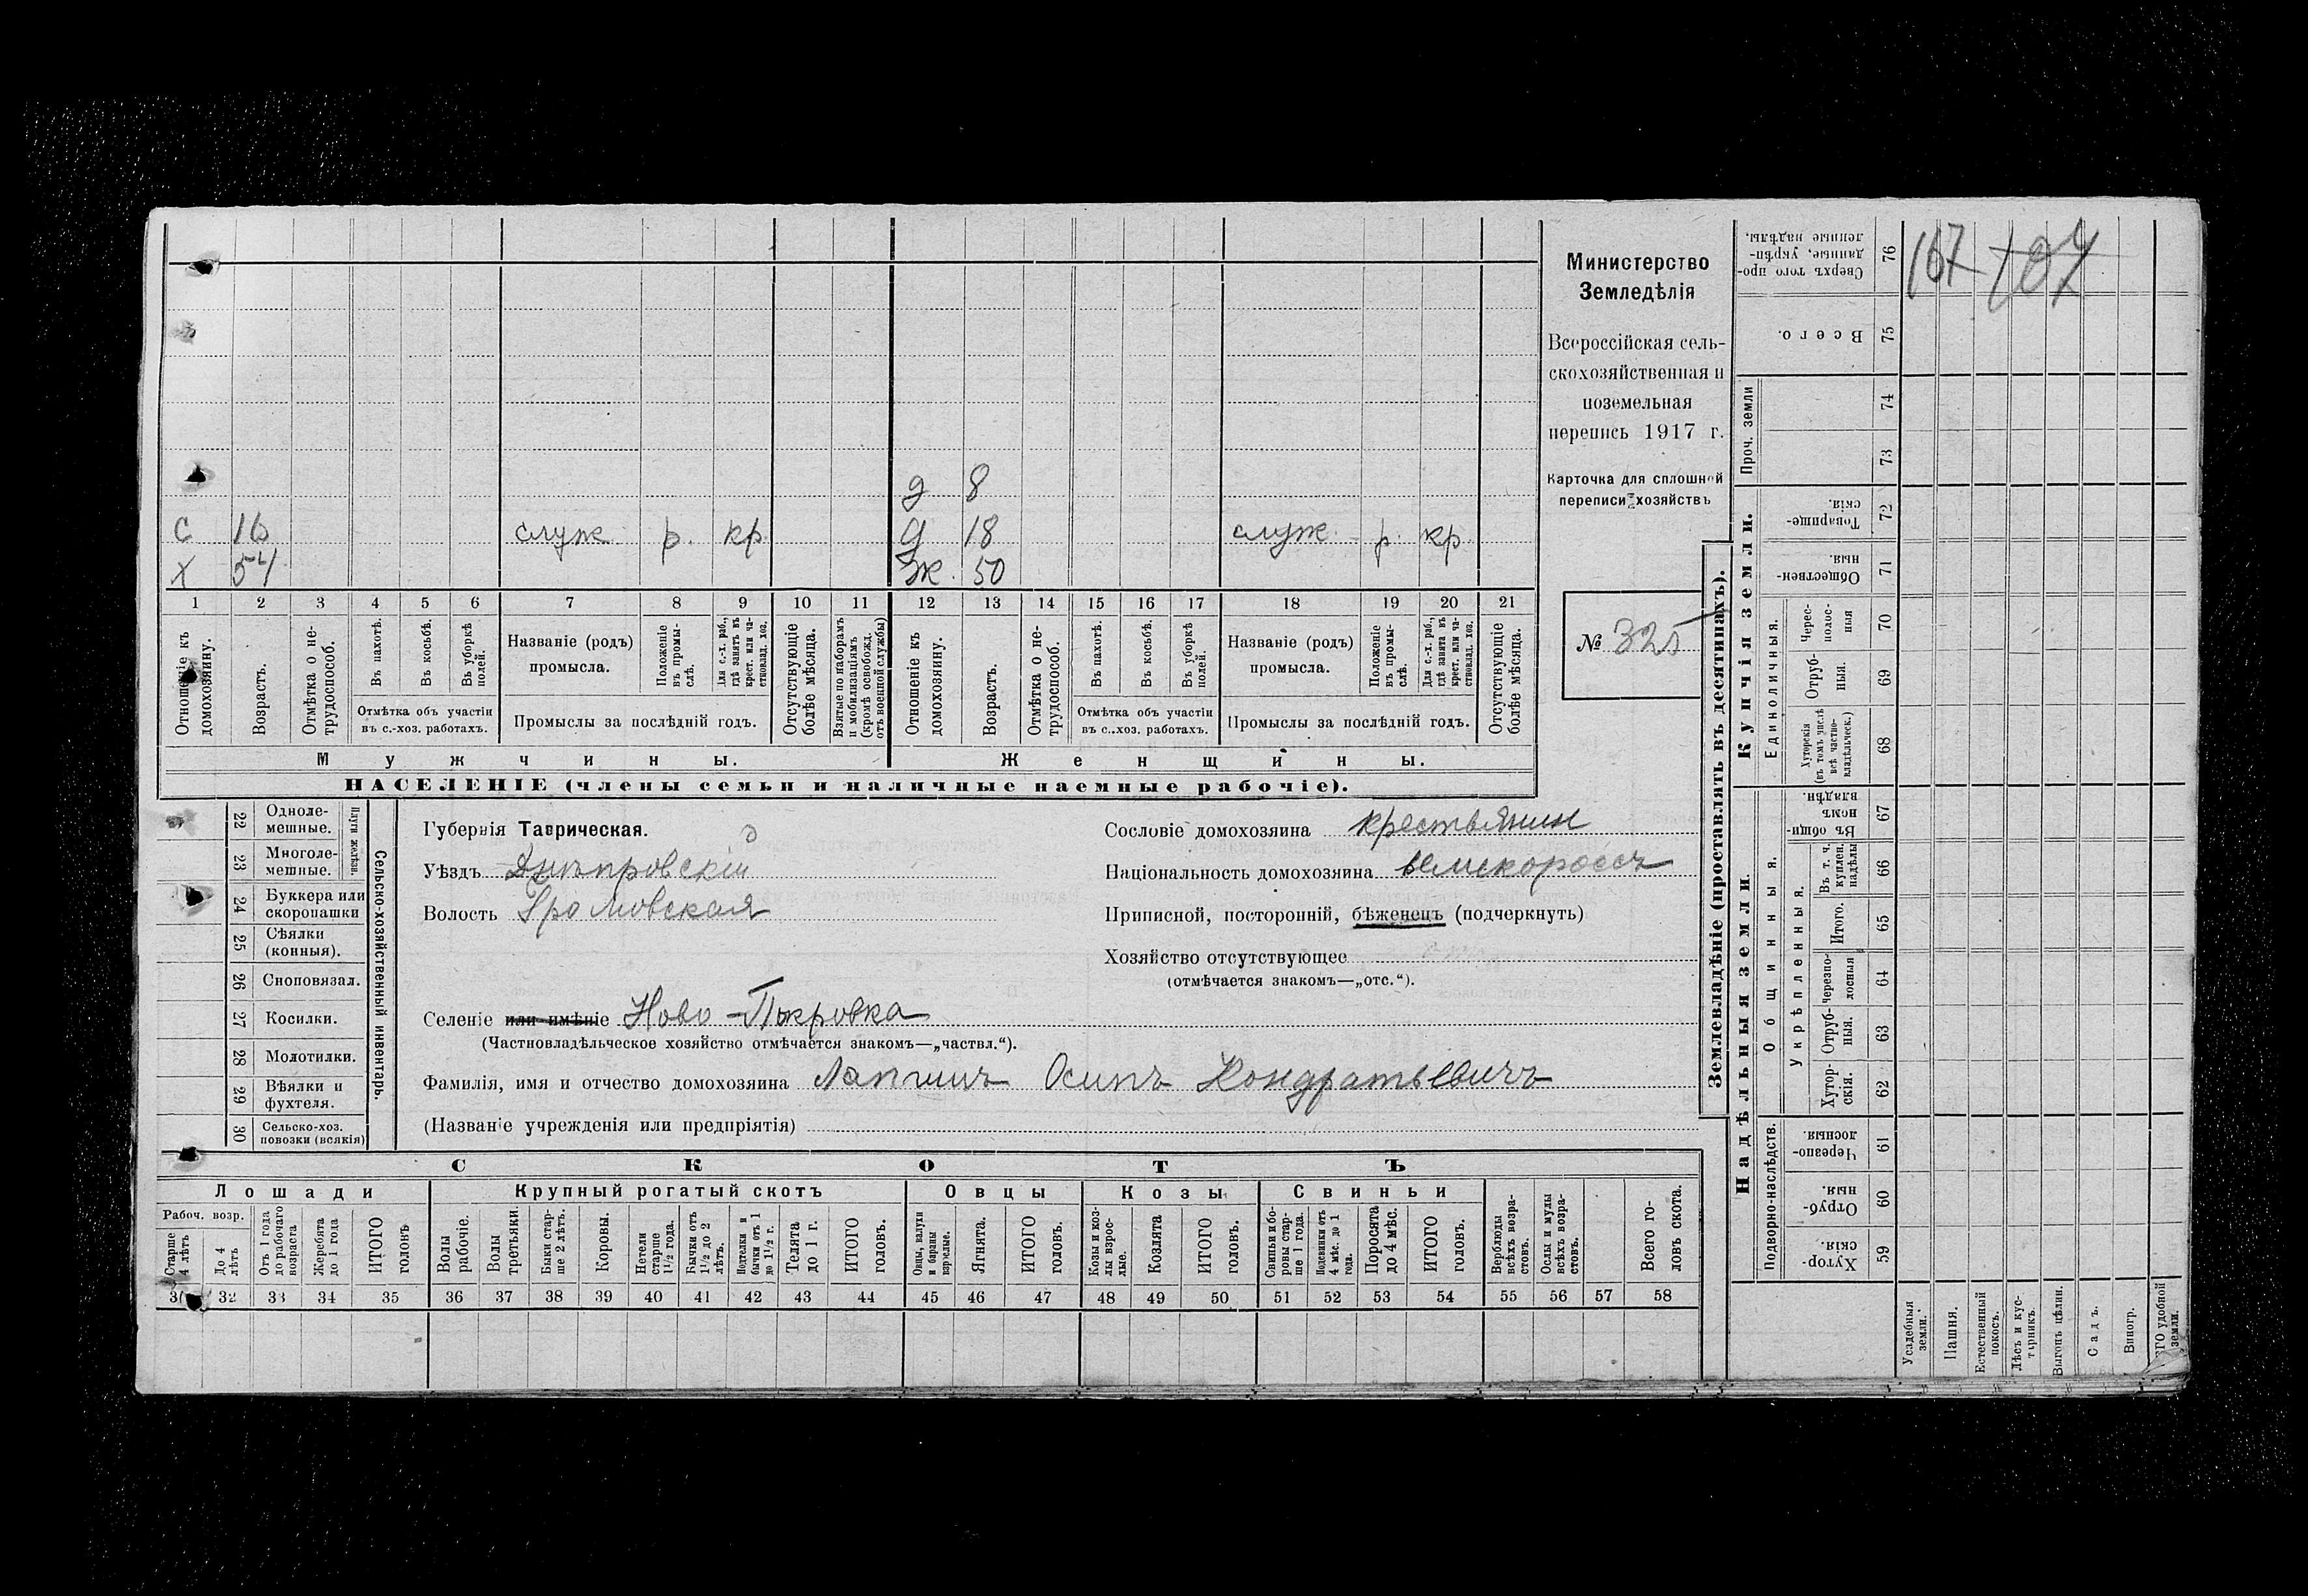 с 16 служ. р. кр.
х 54
д 8
д 18 служ. р. кр.
ж. 50
1 2 3 4 5 6 7 8 9 10 11 12 13 14 15 16 17 18 19 20 21
Отношеніе къ домохозяину.
Возрастъ.
Отмѣтка о не-
трудоспособ.
Въ пахотѣ.
Въ косьбѣ.
Въ уборкѣ
полей.
Отмѣтка объ участіи
въ с.-хоз. работахъ.
Названіе (родъ)
промысла.
Положеніе
въ промы-
слѣ.
Для с.-х. раб.,
гдѣ занятъ въ
крест. или ча-
стновлад. хоз.
Промыслы за послѣдній годъ.
Отсутствующіе
болѣе мѣсяца.
Взятые по наборамъ
и мобилизаціямъ
(кромѣ освобожд.
отъ военной службы)
Отношеніе къ
домохозяину.
Возрастъ.
Отмѣтка о не-
трудоспособ.
Въ пахотѣ.
Въ косьбѣ.
Въ уборкѣ
полей.
Отмѣтка объ участіи
въ с..хоз. работахъ.
Названіе (родъ)
промысла.
Положеніе
въ промы-
слѣ.
Для с.-х. раб.,
гдѣ занята въ
крест. или ча-
стновлад. хоз.
Промыслы за послѣдній годъ.
Отсутствующіе
болѣе мѣсяца.
Мужчины. Женщины.
НАСЕЛЕНІЕ (члены семьи и наличные наемные рабочіе).
Министерство
Земледѣлія
Всероссійская сель-
скохозяйственная и
поземельная
перепись 1917 г.
Карточка для сплошной
переписи хозяйствъ
№ 325
22 Одноле-
мешные.
23 Многоле-
мешные.
Плуги желѣзн.
24 Буккера или
скоропашки
25 Сѣялки
(конныя).
26 Сноповязал.
27 Косилки.
28 Молотилки.
29 Вѣялки и
фухтеля.
30 Сельско-хоз.
повозки (всякія)
Сельско-хозяйственный инвентарь.
Губернія Таврическая.
Уѣздъ Днѣпровскій
Волость Громовская
Селеніе или имѣніе Ново-Покровка
(Частновладѣльческое хозяйство отмѣчается знакомъ—„частвл.“).
Фамилія, имя и отчество домохозяина Лапшинъ Осипъ Кондратьевичъ
(Названіе учрежденія или предпріятія)
Сословіе домохозяина крестьянин
Національность домохозяина великороссъ
Приписной, посторонній, бѣженецъ (подчеркнуть)
Хозяйство отсутствующее
(отмѣчается знакомъ—„отс.“).
СКОТЪ
Лошади Крупный рогатый скотъ Овцы Козы Свиньи
Рабоч. возр.
Старше
4 лѣтъ
До 4
лѣтъ
Отъ 1 года
до рабочаго
возраста
Жеребята
до 1 года
ИТОГО
головъ
Волы
рабочіе.
Волы
третьяки.
Быки стар-
ше 2 лѣтъ.
Коровы.
Нетели
старше
1½ года.
Бычки отъ
1½ до 2
лѣтъ.
Подтелки и
бычки отъ 1
до 1½ г.
Телята
до 1 г.
ИТОГО
головъ.
Овцы, валухи
и бараны
взрослые.
Ягнята.
ИТОГО
головъ.
Козы и коз-
лы взрос-
лые.
Козлята
ИТОГО
головъ.
Свиньи и бо-
ровы стар-
ше 1 года.
Подсвинки отъ
4 мѣс. до 1
года.
Поросята
до 4 мѣс.
ИТОГО
головъ.
Верблюды
всѣхъ возра-
стовъ.
Ослы и мулы
всѣхъ возра-
стовъ.
Всего го-
ловъ скота.
32 33 34 35 36 37 38 39 40 41 42 43 44 45 46 47 48 49 50 51 52 53 54 55 56 57 58
Землевладѣніе (проставлять въ десятинахъ).
Купчія земли.
Надѣльныя земли.
167 107
76 Сверхъ того про-
данные, укрѣп-
ленные надѣлы.
75 Всего.
Проч. земли
74
73
72 Товарище-
скія.
71 Обществен-
ныя
Единоличныя.
70 Черес-
полос-
ныя
69 Отруб-
ныя.
68 Хуторскія
(въ томъ числѣ
всѣ частно-
владѣльческ.)
Общинныя.
67 Въ общи-
номъ
владѣн.
Укрѣпленныя.
66 Въ т. ч.
куплен.
надѣлы
65 Итого.
64 Черезпо-
лосныя
63 Отруб-
ныя.
62 Хутор-
скія.
Подворно-наслѣдств.
61 Черезпо-
лосныя
60 Отруб-
ныя.
59 Хутор-
скія.
Усадебныя
земли.
Пашня.
Естественный
покосъ.
Лѣсъ и кус-
тарникъ.
Выгонъ цѣлин.
Садъ.
Виногр.
удобной
земли.